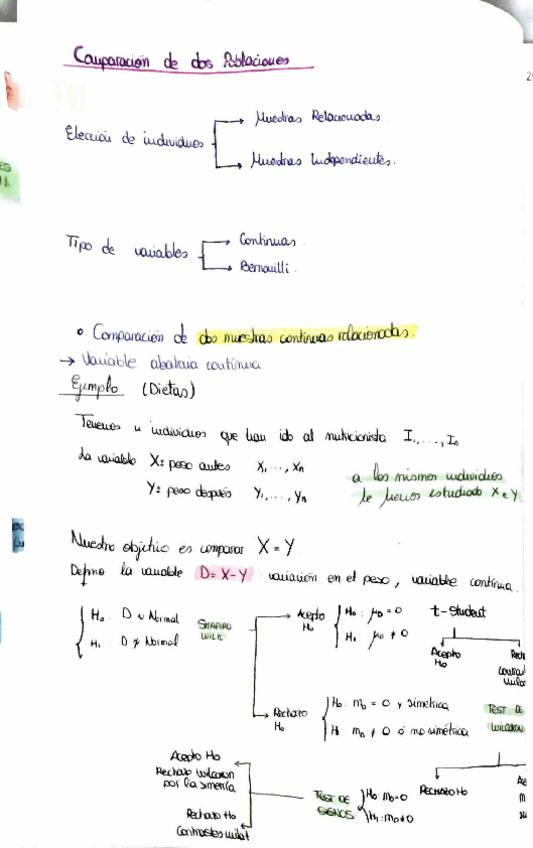 Comparación de dos Poblaciones
Elección de individuos
Muestras Relacionadas.
Muestras Independientes.
Tipo de variables
Continuas.
Bernouilli.
• Comparación de dos muestras continuas relacionadas.
→ Variable continua
Ejemplo (Dietas)
Tenemos n individuos que han ido al nutricionista I₁,...,Iₙ
La variable X = peso antes X₁,...,Xₙ
Y = peso después Y₁,...,Yₙ
a los mismos individuos
le hemos estudiado X e Y.
Nuestro objetivo es comparar X = Y
Defino la variable D = X-Y variación en el peso, variable continua.
H₀: D ~ Normal
H₁: D ≁ Normal
SHAPIRO
WILK
Acepto
H₀
H₀: μD = 0
H₁: μD ≠ 0
t-student
Acepto
H₀
Rechazo
H₀
H₀: mD = 0 y simétrica
H₁ mD ≠ 0 ó no simétrica
TEST DE
Rechazo H₀
Acepto H₀
Rechazo wilcoxon
por la simetría
Rechazo H₀
TEST DE
SIGNOS
H₀: mD=0
H₁: mD≠0